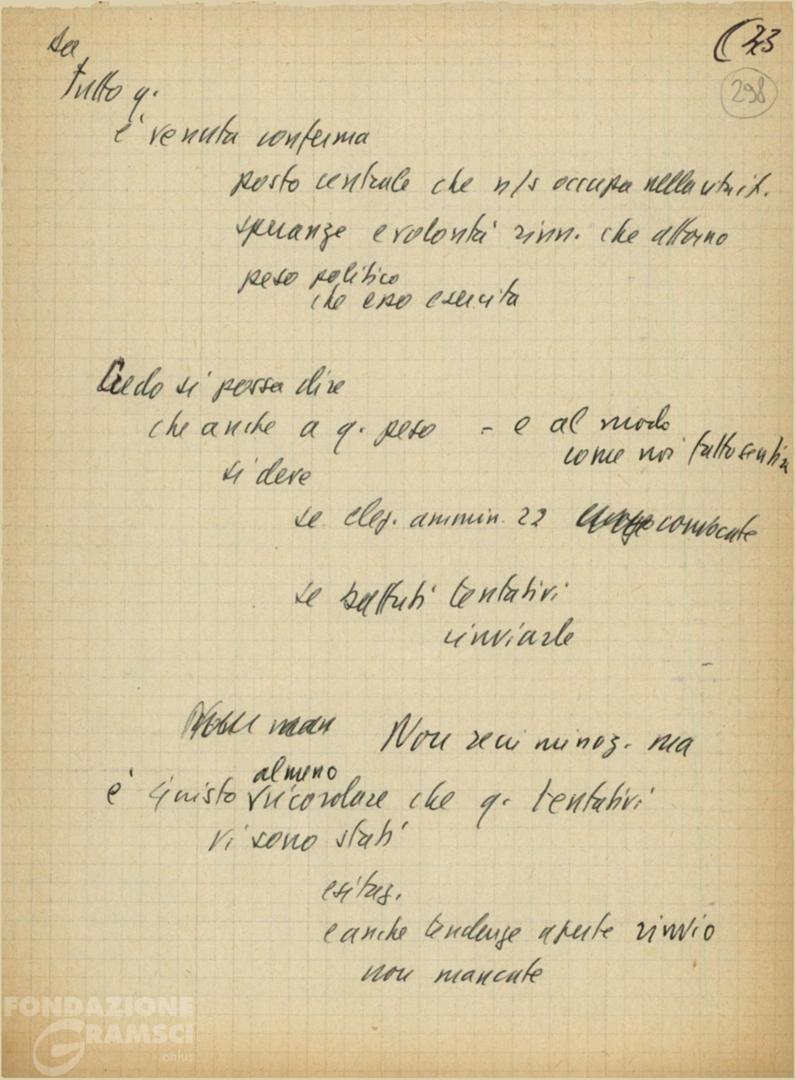 (23
298
da
tutto q.
è venuta conferma
posto centrale che n/s occupa nella vita it.
speranze e volontà rinn. che attorno
peso politico
che esso esercita
Credo si possa dire
che anche a q. peso - e al modo
come noi fatto sentire
si deve
se elez. ammin. 22 convocate
se battuti tentativi
rinviarle
Non recriminaz. ma
almeno
è giusto ricordare che q. tentativi
vi sono stati
esitaz.
e anche tendenze aperte rinvio
non mancate
FONDAZIONE
GRAMSCI
onlus